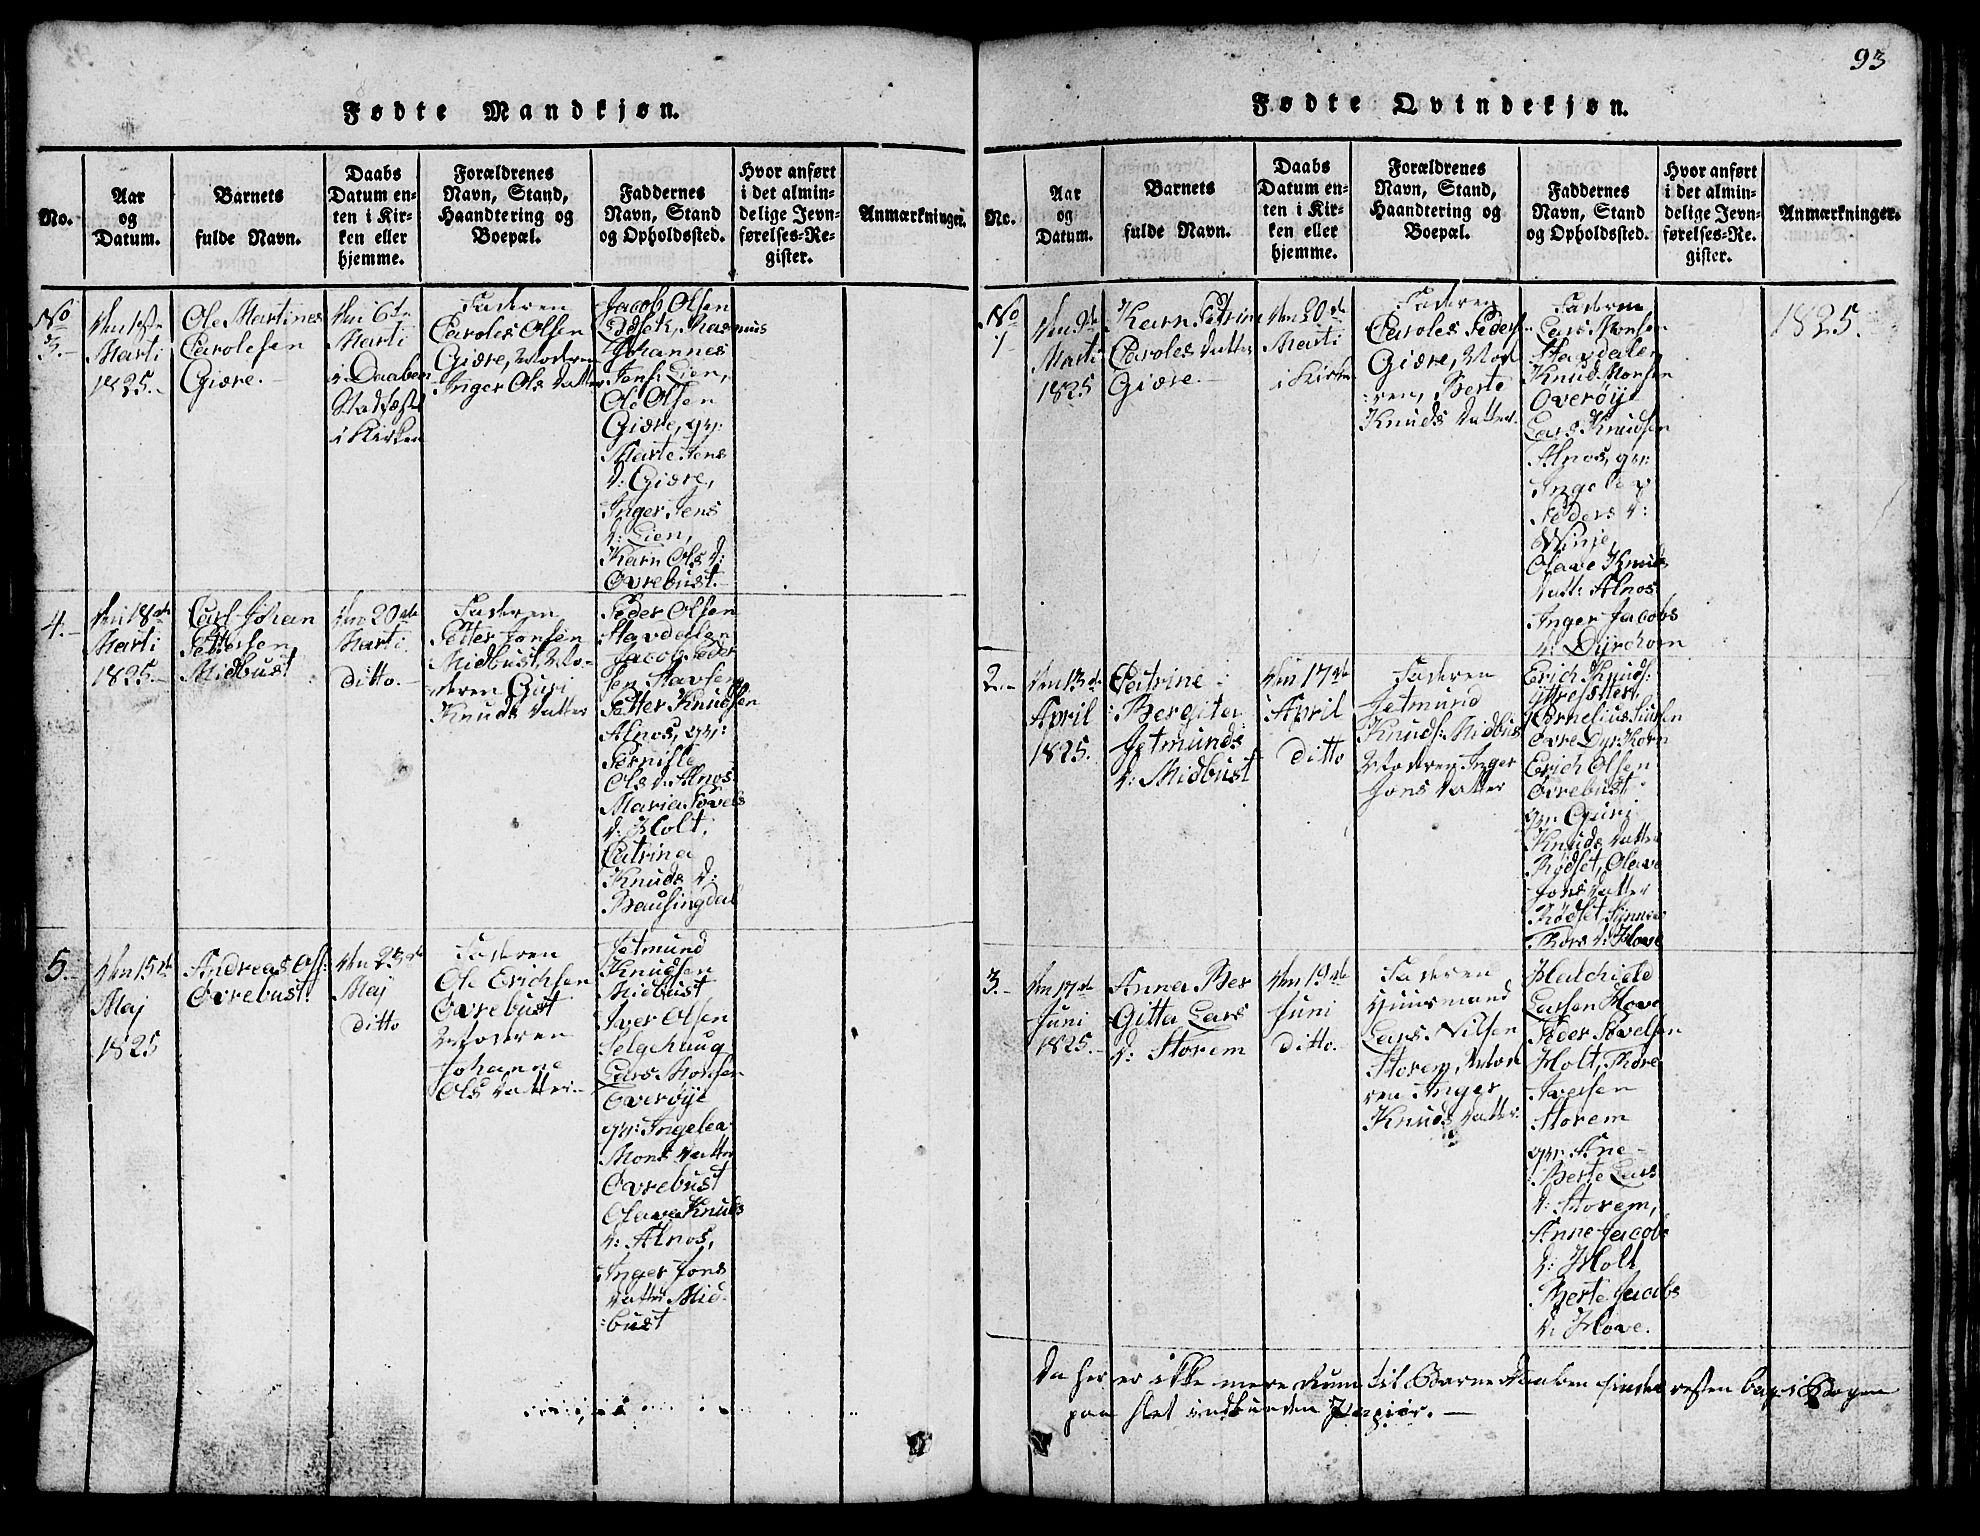 93
Fødte Mandkjøn.
No.
Aar
og
Datum.
Barnets
fulde Navn.
Daabs
Datum en-
ten i Kir-
ken eller
hjemme.
Forældrenes
Navn, Stand,
Haandtering og
Boepæl.
Faddernes
Navn, Stand
og Opholdssted.
Hvor anført
i det almin-
delige Jevn-
førelses-Re-
gister.
Anmærkninger.
No
3.-
Marti
1825.-
Ole Martines
Carolesen
Giære.-
den 6te
Marti
Daaben
Stadfæst
i Kirken
Faderen
Caroles Olsen
Giære, Moderen
Inger Ols datter
Jacob Olsen
Rasmus
Johannes
Jens: Lien,
Ole Olsen
Giære, qv:
Marte Jens
d: Giære,
Inger Jens
d: Lien,
Karn Ols d:
Øvrebust.
4.-
den 18de
Marti
1825.-
Carl Johan
Pettersen
Midbust
den 20de
Marti.
ditto.-
Faderen
Petter Jonsen
Midbust, Mo-
deren Guri
Knuds datter
Peder Olsen
Stavdalen
Jacob Peder
sen
Petter Knudsen
Alnos, qv:
Pernille
Ols d: Alnos
Maria
d: Holt,
Catrina
Knuds d:
5.-
den 15de
Maj
1825
Andreas Ols:
Øvrebust.
den 23de
Maj
ditto
Faderen
Ole Erichsen
Øvrebust
Moderen
Johanne
Ols datter.-
Jetmund
Knudsen
Midbust
Iver Olsen
Lars Monsen
Overøye
qv: Ingelea
Mons datter
Øvrebust
Olave Knuds
d: Alnos,
Inger Jons
datter Mid-
:bust
Fødte Qvindekjøn.
No.
Aar
og
Datum.
Barnets
fulde Navn.
Daabs
Datum en-
ten i Kir-
ken eller
hjemme.
Forældrenes
Navn, Stand,
Haandtering og
Boepæl.
Faddernes
Navn, Stand
og Opholdssted.
Hvor anført
i det almin-
delige Jevn-
førelses-Re-
gister.
Anmærkninger.
No
1
Marti
1825
Karn Petrine
Caroles datter
Giære.-
den 20de
Marti
i Kirken
Faderen
Caroles Peders:
Giære, Mod
:ren, Berte
Knuds datter.
Faderne
Lars Monsen
Stavdalen
Knud Monsen
Overøye
Lars Knudsen
Alnos, qv:
Peders d:
Winje,
Olave Knuds
datt: Alnos
Inger Jacobs
d: Dyrchorn
1825.
2.-
den 13de
April
1825.
Petrine
Bergita
Jetmunds
d: Midbust
den 17de
April
ditto
Faderen
Jetmund
Knuds: Midbus
Moderen Inger
Jons datter
Erich Knuds:
Cornelius
Øvre Dyrkorn
Erich Olsen
Øvrebust
qv: Guri
Knuds datter
Rødset, Olave
Jons datter
Rødset, Synnev
Thors d: Hove
3.-
den 17de
Juni
1825.-
Anna Ber
Gitta Lars
d: Storem
den 19de
Juni
ditto.
Faderen
Huusmand
Lars Nilsen
Storem, Mod
ren Inger
Knuds datter.
Halchield
Larsen Hove
Peder
Holt, Thore
Iversen
Storem
qv: Ane-
Berte Lars
d: Storem,
Anne Jacobs
d: Holt
Berte Jacobs
d: Hove.
Da her er ikke mere Rum til Børne Daaben findes resten bag i Bogen
paa slet indbunden Papiir.-